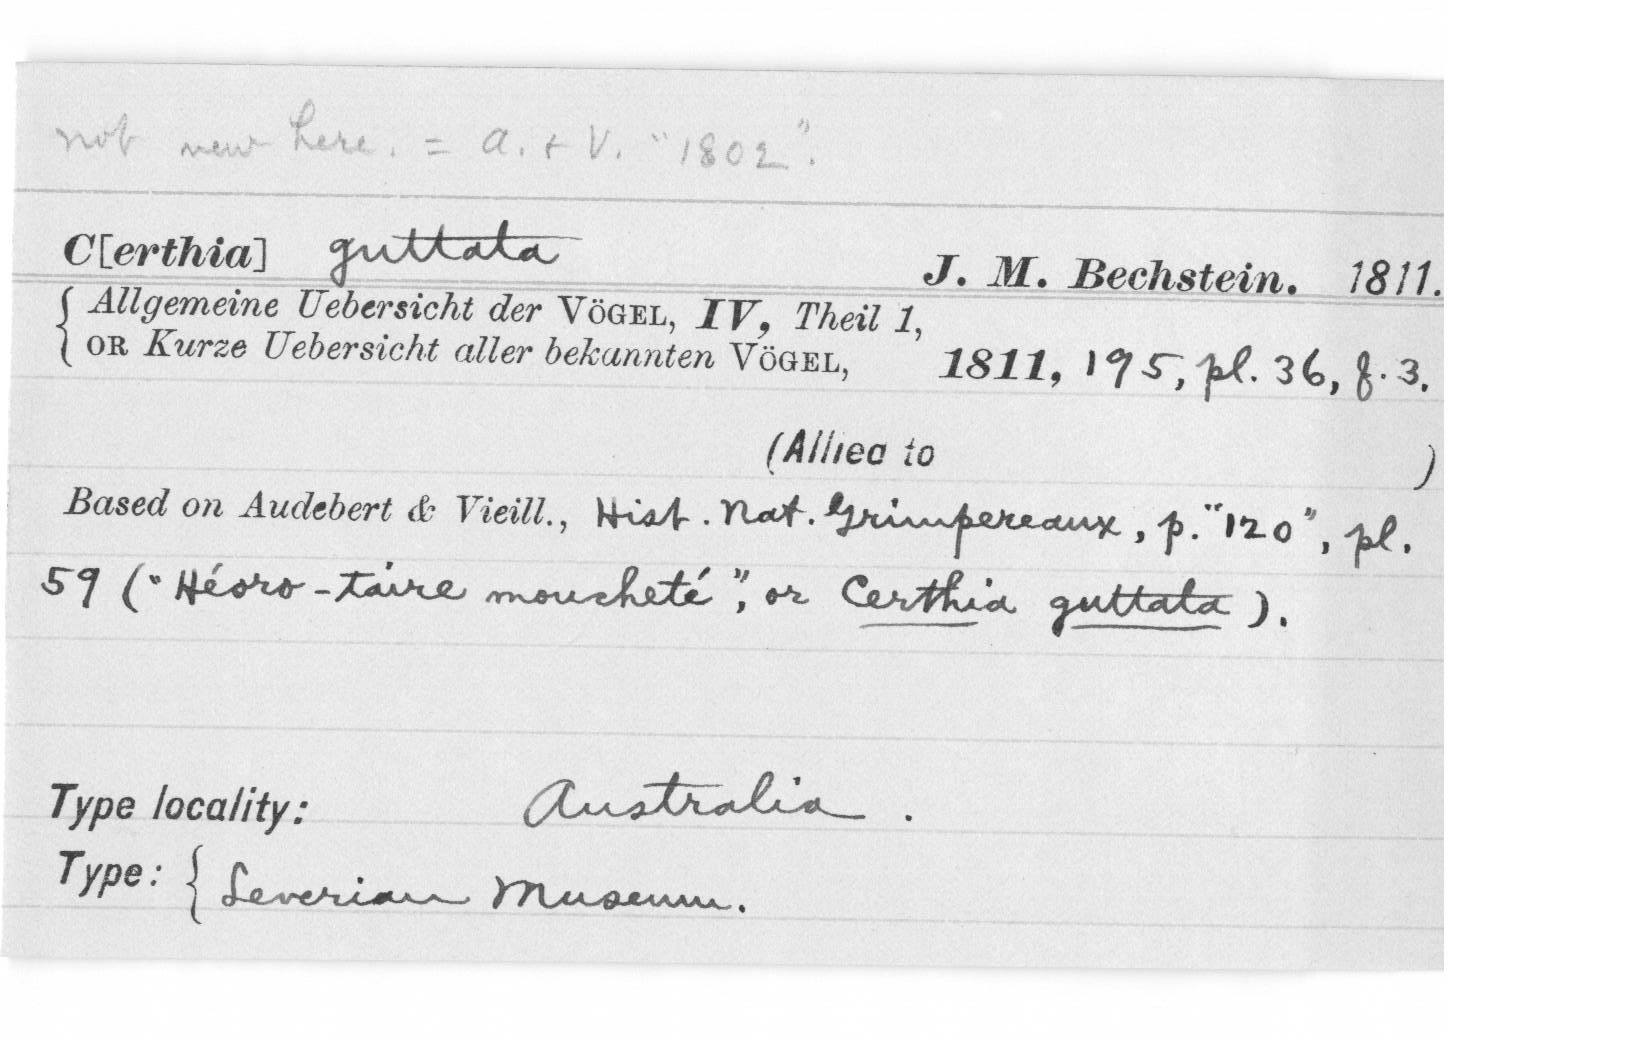 not new here. = A. + V. "1802".
C[erthia] guttata J. M. Bechstein. 1811.
{ Allgemeine Uebersicht der VÖGEL, IV, Theil 1,
OR Kurze Uebersicht aller bekannten VÖGEL, 1811, 195, pl. 36, f. 3.
(Allied to )
Based on Audebert & Vieill., Hist. Nat. Grimpereaux, p. "120", pl.
59 ("Héoro-taire moucheté", or Certhia guttata).
Type locality: Australia.
Type: { Leverian Museum.